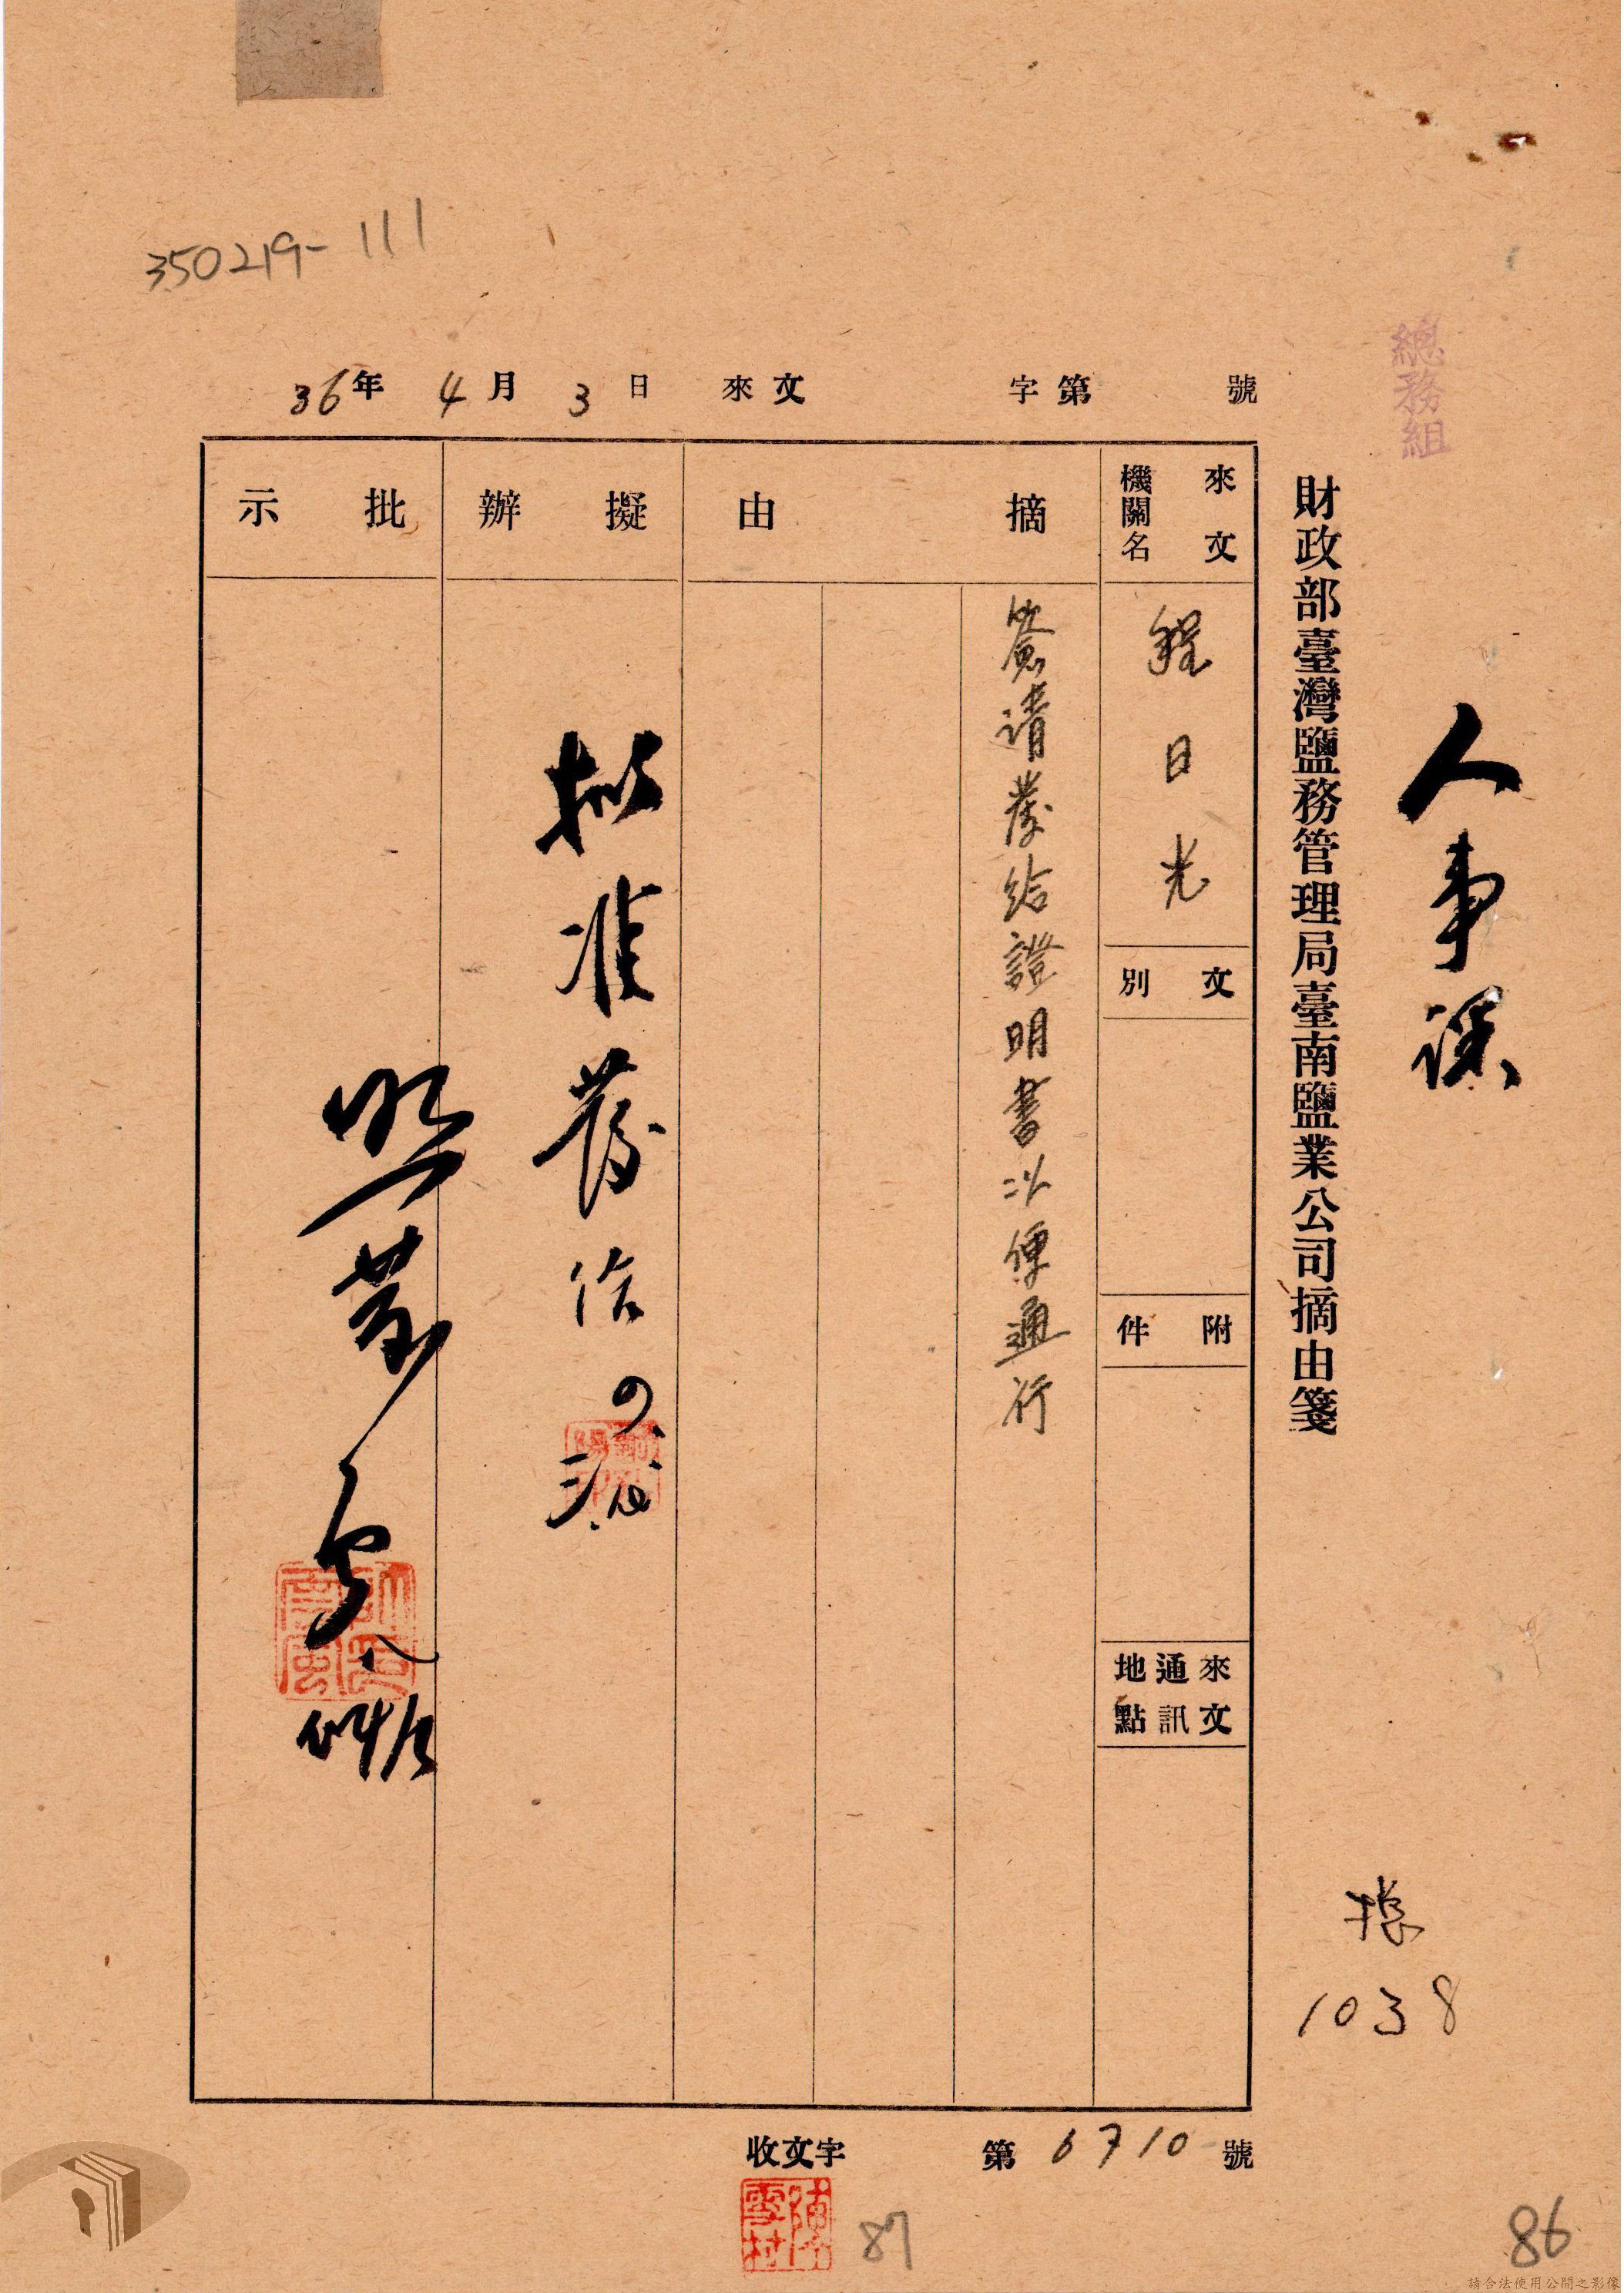 350219-111
總務組
人事課
財政部臺灣鹽務管理局臺南鹽業公司摘由箋
36年4月3日來文 字第 號
來文機關名
程日光
文別
附件
來文通訊地點
摘由
簽請發給證明書以便通行
擬辦
拟准發給
批示
照發
總
1038
收文字 第6710號
87
86
請合法使用公開之影像